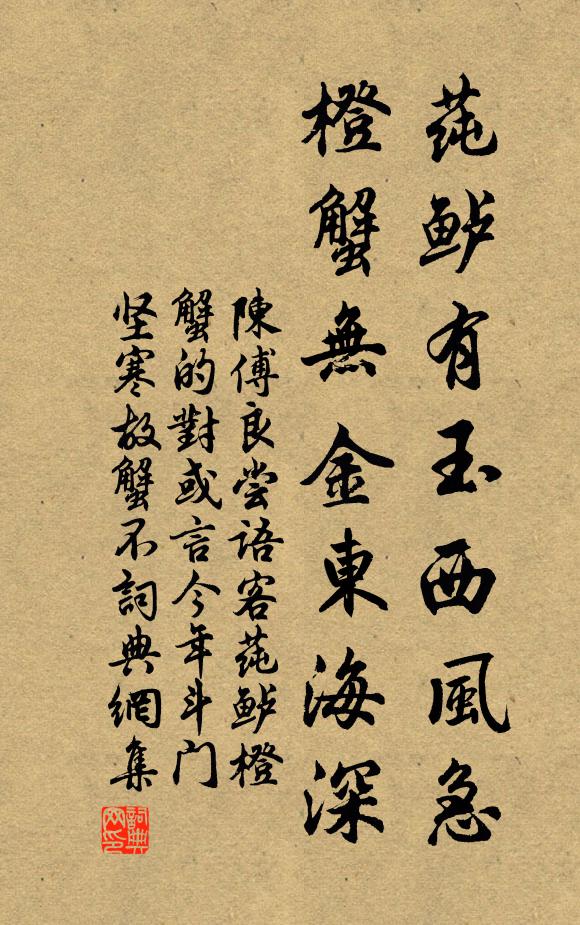 莼鲈有玉西風急
橙蟹無金東海深
陳傅良尝語客莼鲈橙
蟹的對或言今年斗门
坚寒故蟹不詞典網集
詞典网印